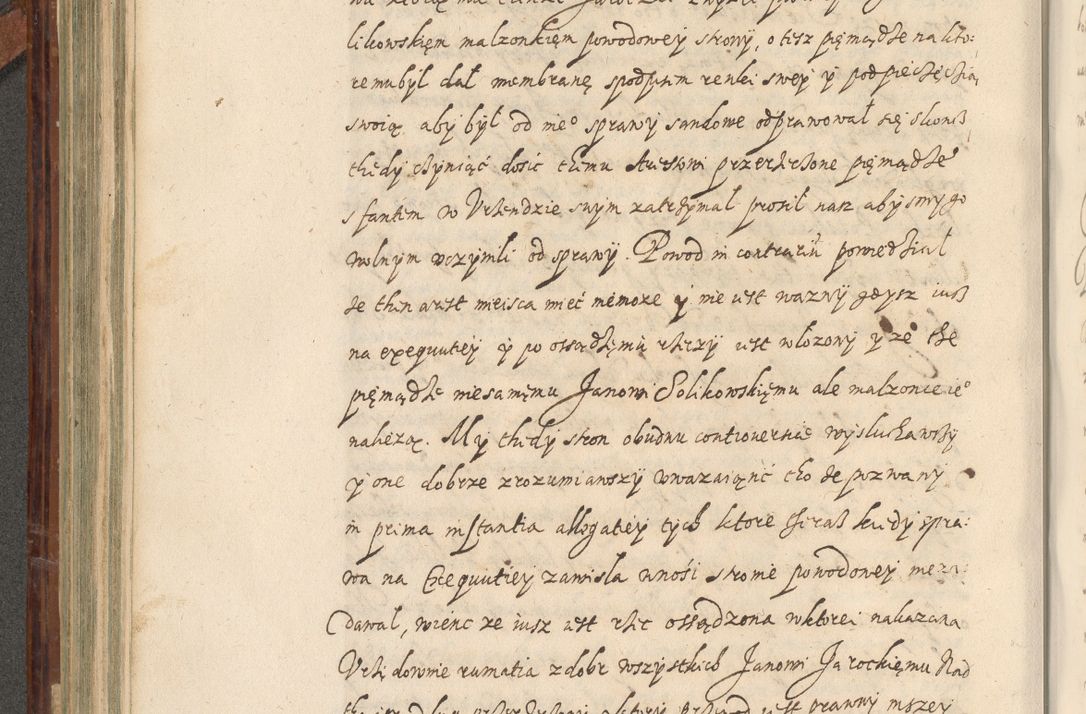 likowskięm malzonkięm powodowey strony, o tesz pięniądze na kto:
remu byl dał membranę spodpisem renki swey y pod pieczęcią
swoią aby był od nie° sprawy sandowe odprawował się skonß
thedy czyniąć dosić themu Aresstowi przerzeczone pięniądze
s fantem w Vrzendzie swym zatrzymal prosil nasz abysmy go
wolnym uczynili od sprawy. Powod in contrariū powiedział
ze then arest mieisca mieć niemoże y nie iest wazny gdysz iuß
na exequutiey y po ossądzęniu rzeczy iest wlozony y ze the
pięniądze niesamęmu Janowi Solikowskięmu ale malzonce ie°
nalezą. My thedy stron obudwu controuersie wysluchawszy
y one dobrze zrozumiawszy vwazaiąnć tho ze pozwany
in prima instantia allegatiey tych ktore theraß kiedy spra:
wa na Exequutiey zawisla wnośi stronie powodowey nieza:
dawal, wienc ze iusz iest rzec ossądzona w ktorei nakazana
Vrzędownie rumatia z dobr wszystkich Janowi Jarockięmu Nad